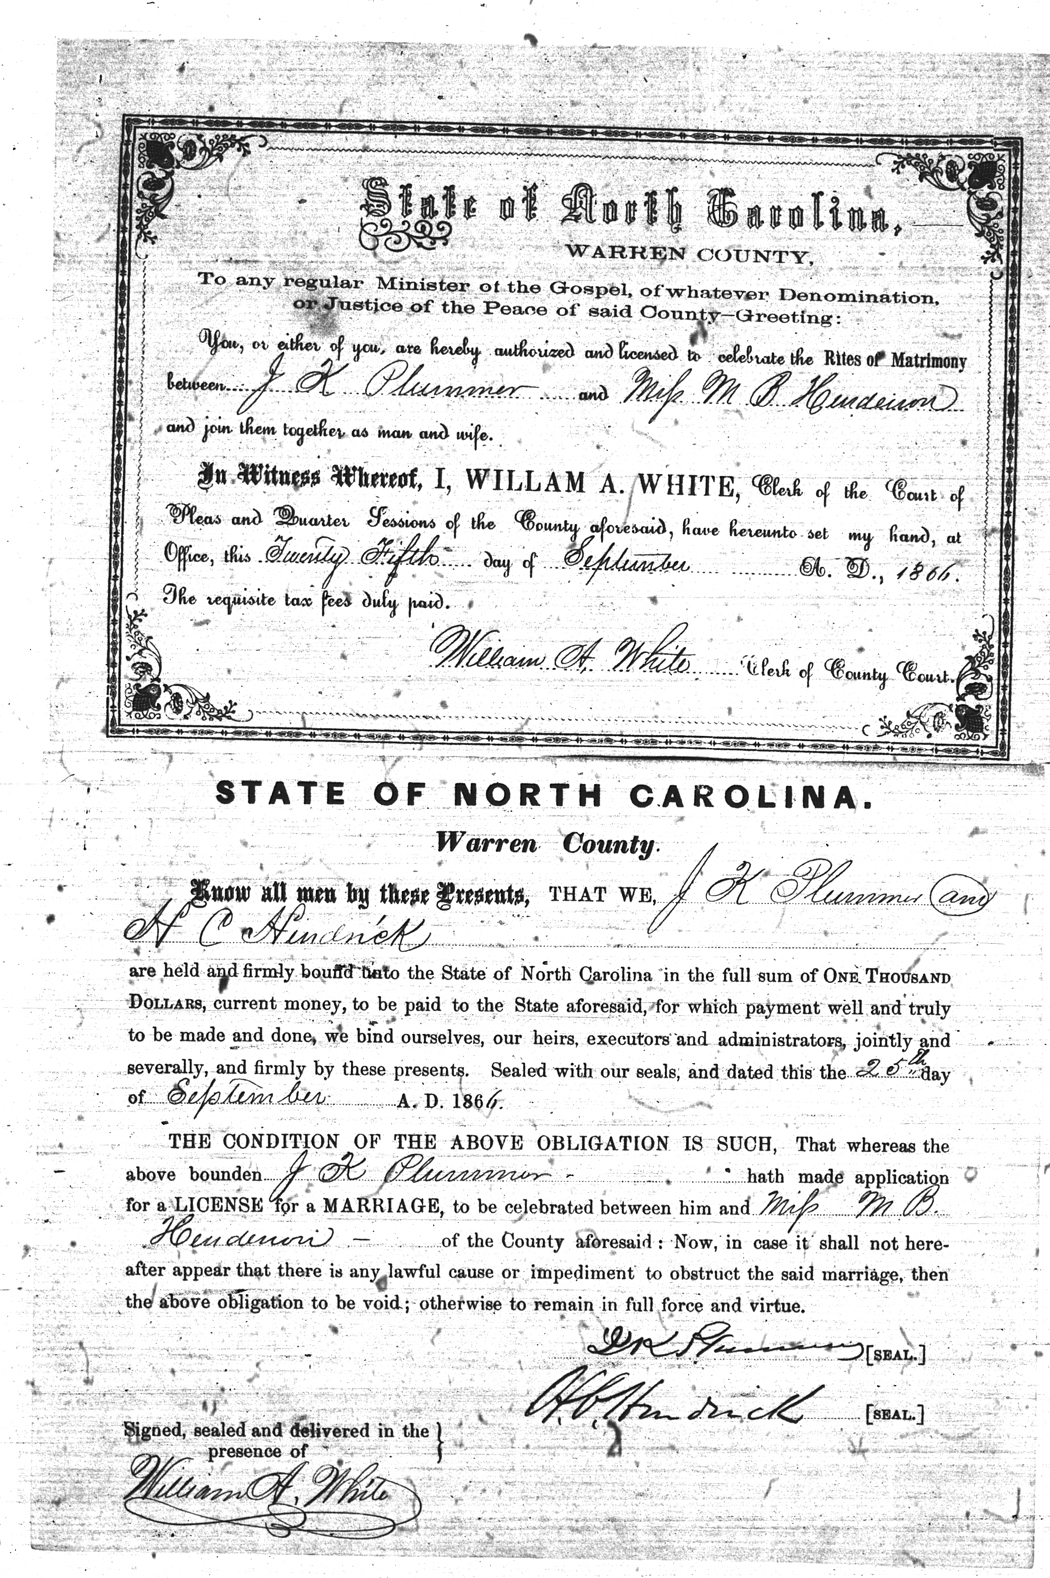 State of North Carolina,
WARREN COUNTY,
To any regular Minister of the Gospel, of whatever Denomination,
or Justice of the Peace of said County—Greeting:
You, or either of you, are hereby authorized and licensed to celebrate the Rites of Matrimony
between J K Plummer and Miss M B Henderson
and join them together as man and wife.
In Witness Whereof, I, WILLAM A. WHITE, Clerk of the Court of
Pleas and Quarter Sessions of the County aforesaid, have hereunto set my hand, at
Office, this Twenty Fifth day of September A. D., 1866.
The requisite tax fees duly paid.
William A. White Clerk of County Court.
STATE OF NORTH CAROLINA.
Warren County.
Know all men by these Presents, THAT WE, J K Plummer and
H C Hendrick
are held and firmly bound unto the State of North Carolina in the full sum of ONE THOUSAND
DOLLARS, current money, to be paid to the State aforesaid, for which payment well and truly
to be made and done, we bind ourselves, our heirs, executors and administrators, jointly and
severally, and firmly by these presents. Sealed with our seals, and dated this the 25th day
of September A. D. 1866.
THE CONDITION OF THE ABOVE OBLIGATION IS SUCH, That whereas the
above bounden J K Plummer - hath made application
for a LICENSE for a MARRIAGE, to be celebrated between him and Miss M B.
Henderson - of the County aforesaid: Now, in case it shall not here-
after appear that there is any lawful cause or impediment to obstruct the said marriage, then
the above obligation to be void; otherwise to remain in full force and virtue.
J K Plummer [SEAL.]
H. C. Hendrick [SEAL.]
Signed, sealed and delivered in the }
presence of
William A. White